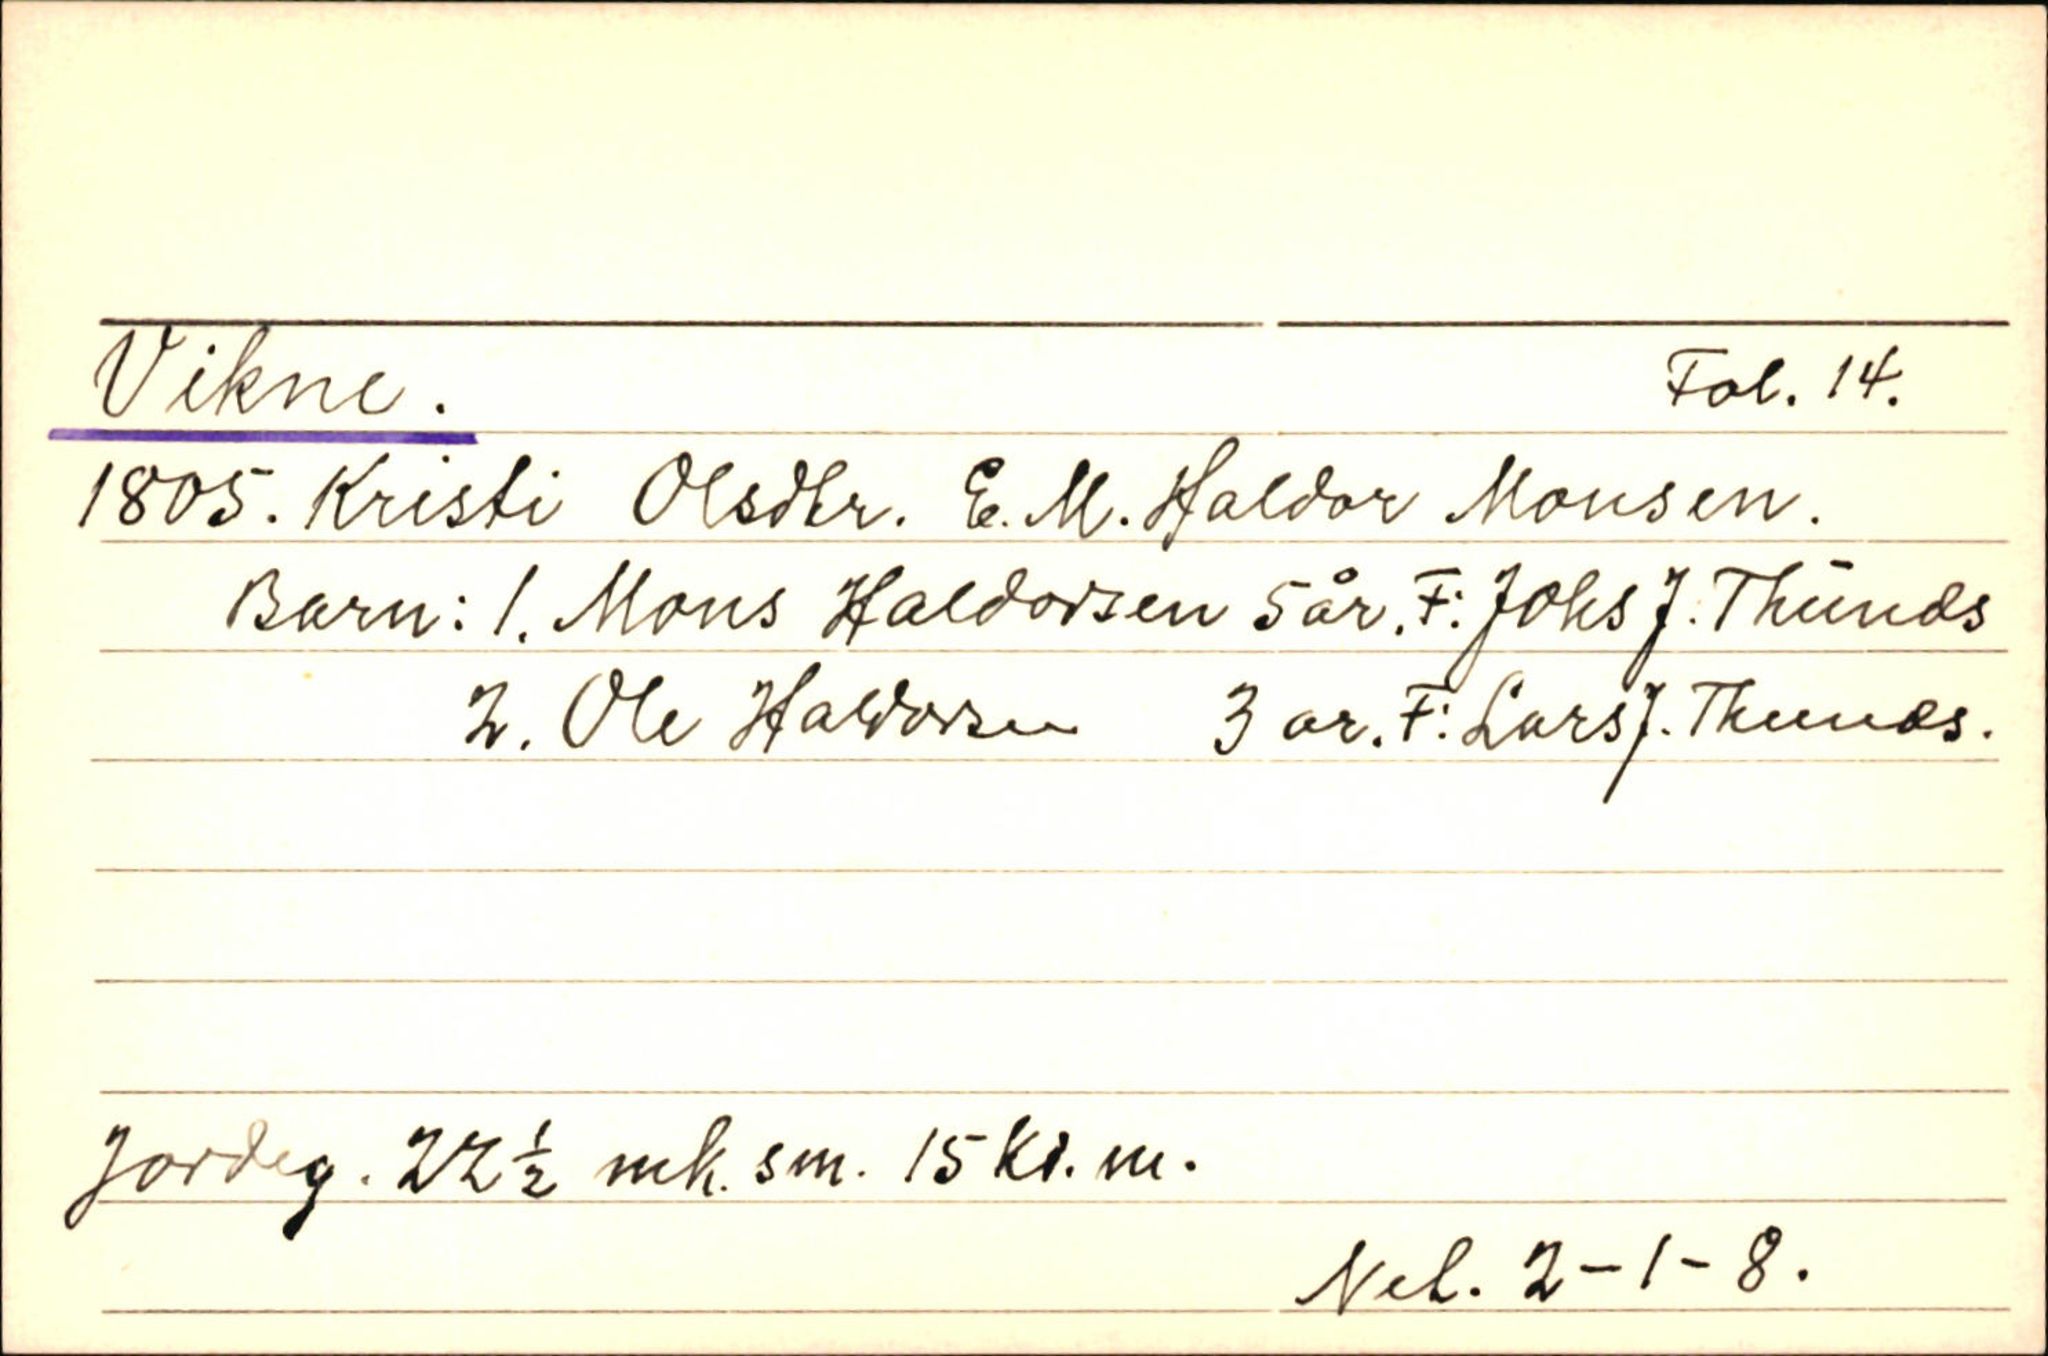 Vikne. Fol. 14.
1805. Kristi Olsdtr. E. M. Haldor Monsen.
Barn: 1. Mons Haldorsen 5 år. F: Johs J. Thunæs
2. Ole Haldorsen 3 ar. F: Lars J. Thunæs.
Jordeg. 22½ mk. sm. 15 Kr. m.
Net. 2-1-8.